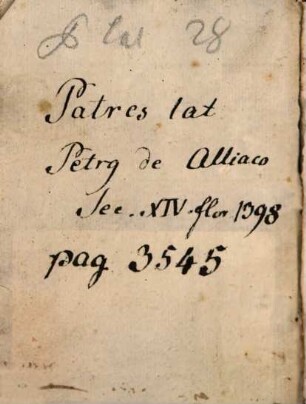 P lat 28
Patres lat
Petrq de Alliaco
Sec. XIV. flor 1398
pag 3545